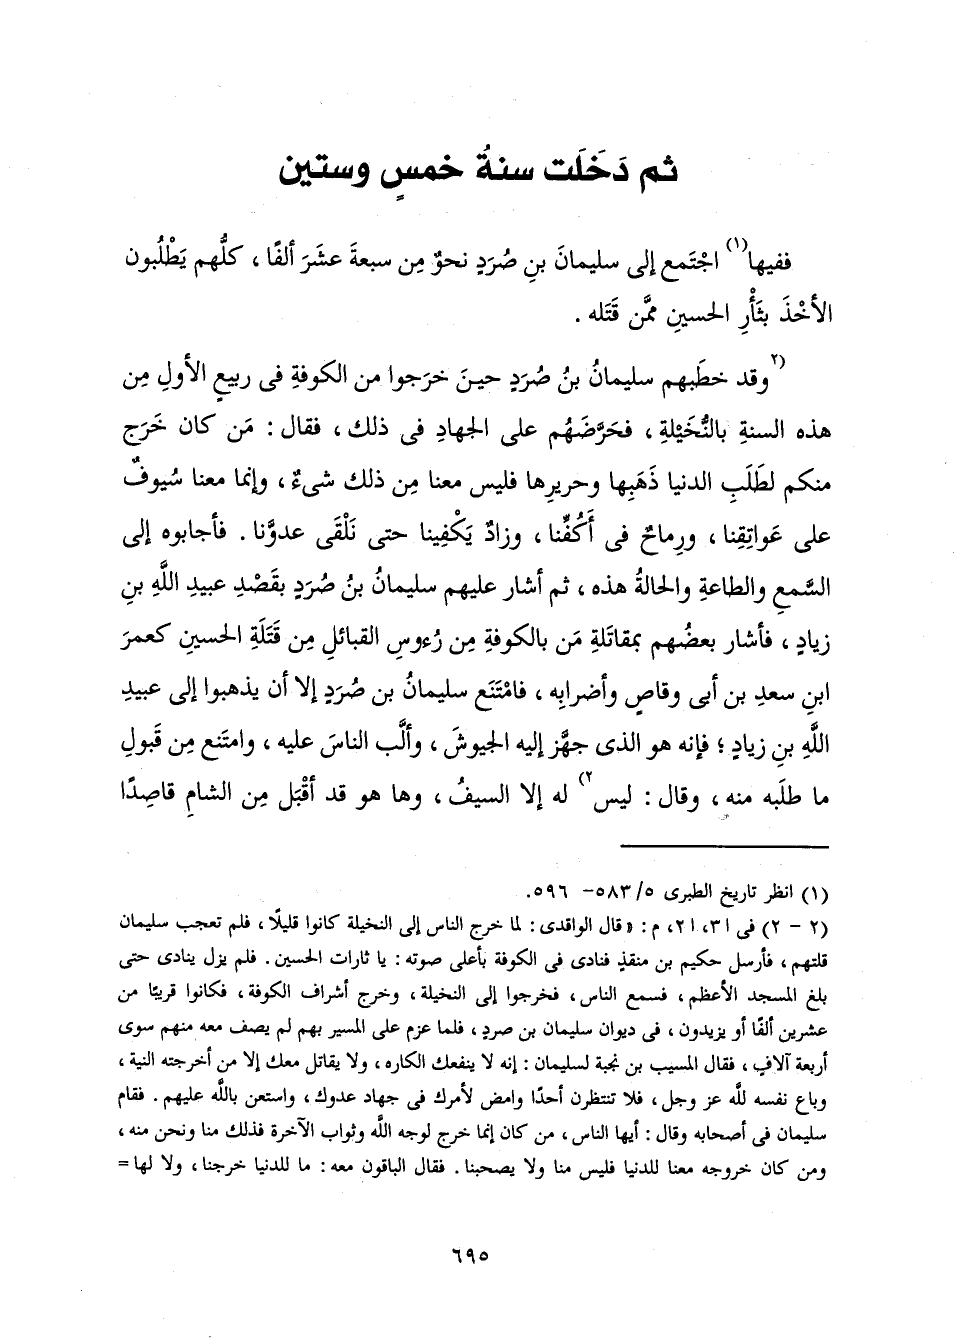 ثم دَخَلَت سنةُ خمسٍ وستين
ففيها(١) اجْتَمع إلى سليمانَ بنِ صُرَدٍ نحوٌ مِن سبعةَ عشَرَ ألفًا ، كلُّهم يَطْلُبون
الأخْذَ بثَأْرِ الحسينِ ممَّن قَتَله .
(٢وقد خطَبهم سليمانُ بنُ صُرَدٍ حينَ خرَجوا من الكوفةِ فى ربيعٍ الأولِ مِن
هذه السنةِ بالنُّخَيْلةِ ، فحَرَّضَهُم على الجهادِ فى ذلك ، فقال : مَن كان خَرَج
منكم لطَلَبِ الدنيا ذَهَبِها وحريرِها فليس معنا مِن ذلك شىءٌ ، وإنما معنا سُيوفٌ
على عَواتِقِنا ، ورِماحٌ فى أَكُفِّنا ، وزادٌ يَكْفِينا حتى نَلْقَى عدوَّنا . فأجابوه إلى
السَّمعِ والطاعةِ والحالةُ هذه ، ثم أشار عليهم سليمانُ بنُ صُرَدٍ بقَصْدِ عبيدِ اللَّهِ بنِ
زيادٍ ، فأشار بعضُهم بمقاتَلةِ مَن بالكوفةِ مِن رُءوسِ القبائلِ مِن قَتَلَةِ الحسينِ كعمرَ
ابنِ سعدِ بن أبى وقاصٍ وأضرابِه ، فامْتَنَع سليمانُ بن صُرَدٍ إلا أن يذهبوا إلى عبيدِ
اللَّهِ بنِ زيادٍ ؛ فإنه هو الذى جهَّز إليه الجيوشَ ، وألَّب الناسَ عليه ، وامتَنع مِن قَبولِ
ما طلَبه منه ، وقال : ليس٢) له إلا السيفُ ، وها هو قد أقْبَل مِن الشامِ قاصِدًا
(١) انظر تاريخ الطبرى ٥/ ٥٨٣- ٥٩٦.
(٢ - ٢) فى ٣١، ٢١، م : « قال الواقدى : لما خرج الناس إلى النخيلة كانوا قليلًا ، فلم تعجب سليمان
قلتهم ، فأرسل حكيم بن منقذ فنادى فى الكوفة بأعلى صوته : يا ثارات الحسين . فلم يزل ينادى حتى
بلغ المسجد الأعظم ، فسمع الناس ، فخرجوا إلى النخيلة ، وخرج أشراف الكوفة ، فكانوا قريبًا من
عشرين ألفًا أو يزيدون ، فى ديوان سليمان بن صرد ، فلما عزم على المسير بهم لم يصف معه منهم سوى
أربعة آلافٍ ، فقال المسيب بن نجبة لسليمان : إنه لا ينفعك الكاره ، ولا يقاتل معك إلا من أخرجته النية ،
وباع نفسه للَّه عز وجل ، فلا تنتظرن أحدًا وامض لأمرك فى جهاد عدوك ، واستعن باللَّه عليهم . فقام
سليمان فى أصحابه وقال : أيها الناس ، من كان إنما خرج لوجه اللَّه وثواب الآخرة فذلك منا ونحن منه ،
ومن كان خروجه معنا للدنيا فليس منا ولا يصحبنا . فقال الباقون معه : ما للدنيا خرجنا ، ولا لها =
٦٩٥